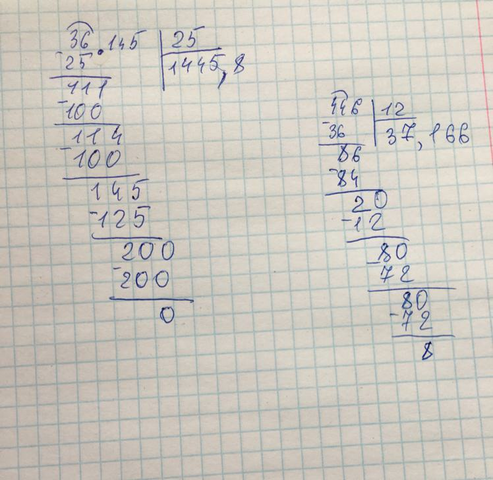 36.145 | 25
-25 | 1445,8
111
-100
114
-100
145
-125
200
-200
0
446 | 12
-36 | 37,166
86
-84
20
-12
80
-72
80
-72
8